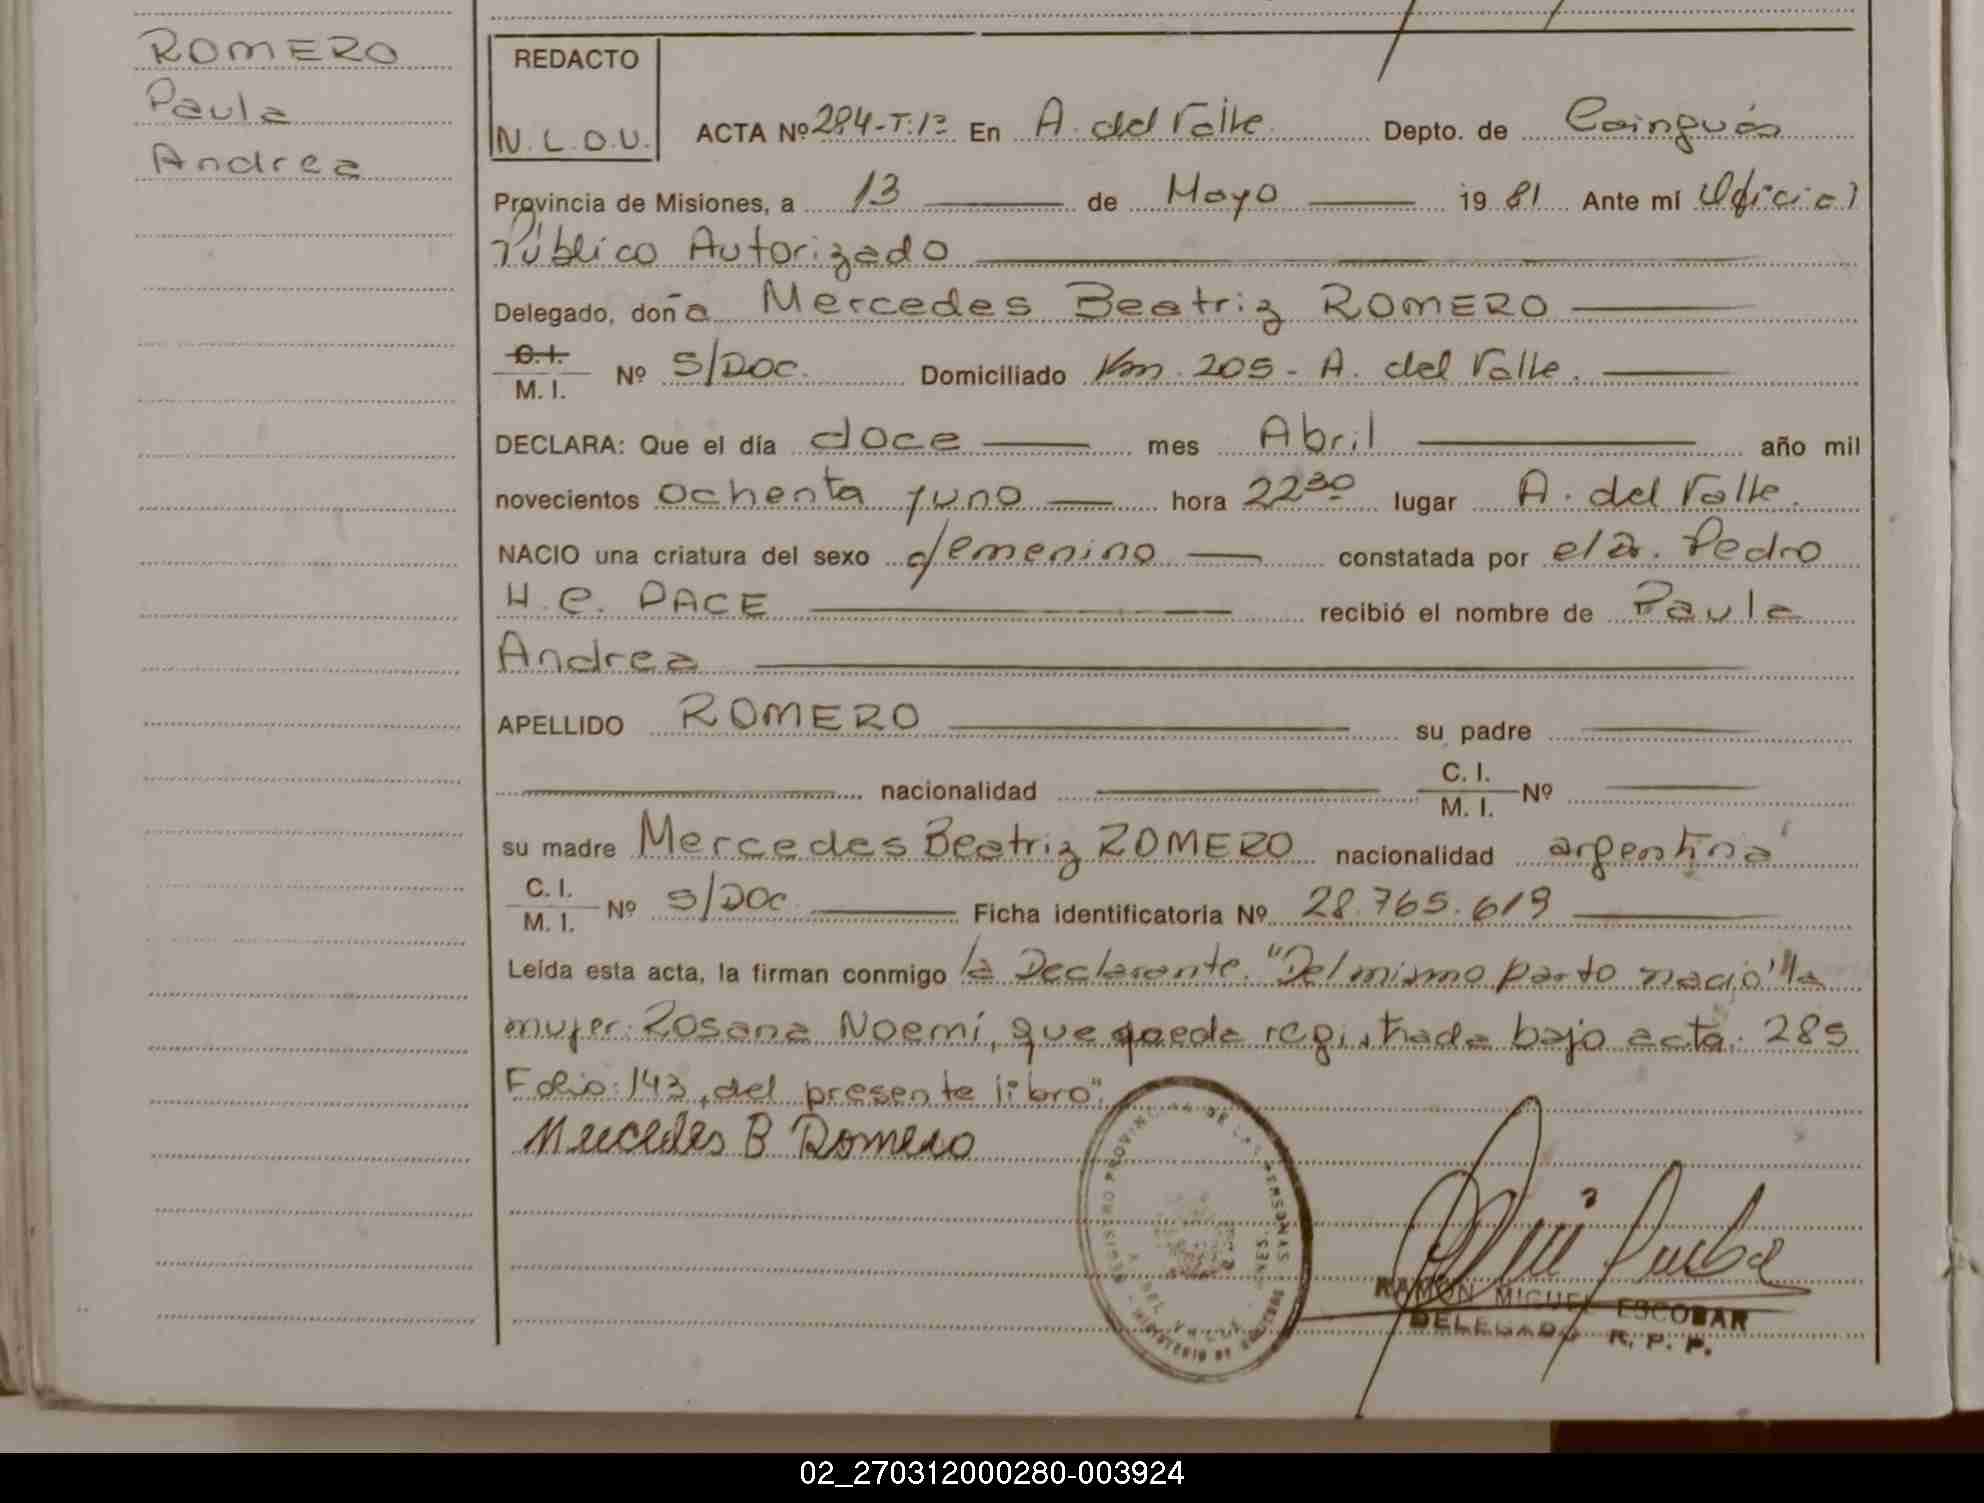 ROMERO
Paula
Andrea
REDACTO
N.L.O.U.
ACTA Nº 284-T:1º En A. del Valle Depto. de Cainguás
Provincia de Misiones, a 13 de Mayo 19 81 Ante mí Oficial
Público Autorizado
Delegado, doña Mercedes Beatriz ROMERO
C.I.
M. I. Nº S/DOC. Domiciliado Km. 205 - A. del Valle.
DECLARA: Que el día doce mes Abril año mil
novecientos ochenta y uno hora 22 30 lugar A. del Valle.
NACIO una criatura del sexo femenino constatada por el Dr. Pedro
H.C. PACE recibió el nombre de Paula
Andrea
APELLIDO ROMERO su padre
nacionalidad C. I.
M. I. Nº
su madre Mercedes Beatriz ROMERO nacionalidad argentina
C. I.
M. I. Nº S/DOC Ficha identificatoria Nº 28.765.619
Leída esta acta, la firman conmigo la Declarante. "Del mismo parto nació la
mujer: Rosana Noemí, que queda registrada bajo acta: 285
Folio: 143, del presente libro".
Mercedes B Romero
RAMON MIGUEL ESCOBAR
DELEGADO R. P. P.
02_270312000280-003924